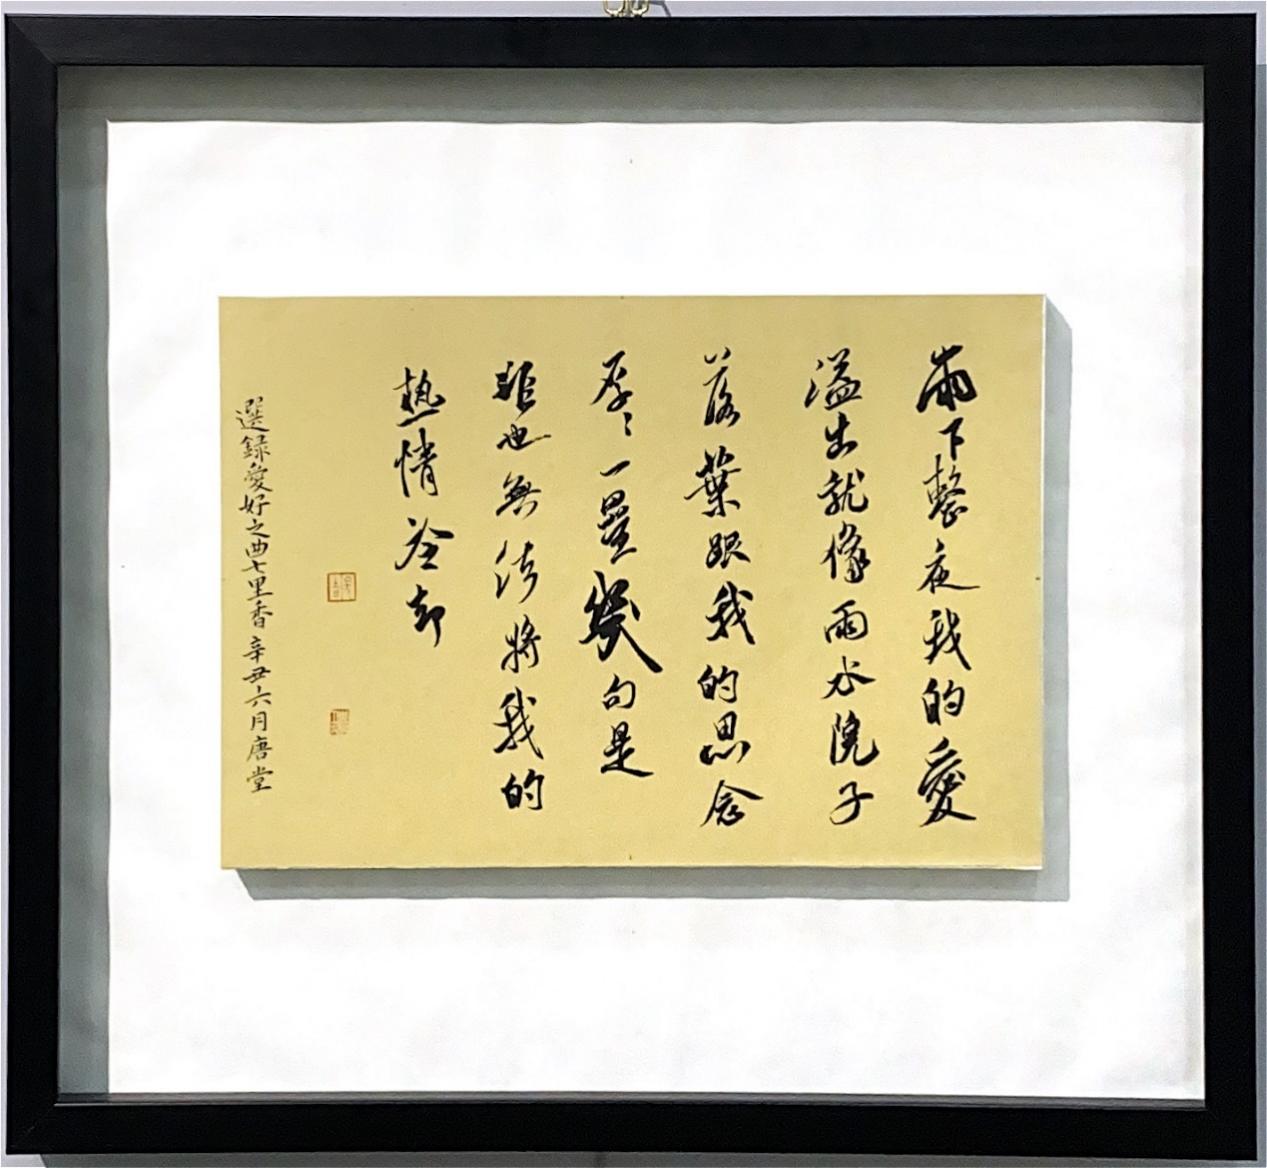 雨下整夜我的愛
溢出就像雨水院子
落葉跟我的思念
厚厚一疊幾句是
非也無法將我的
熱情冷却
選録愛好之曲七里香辛丑六月唐堂